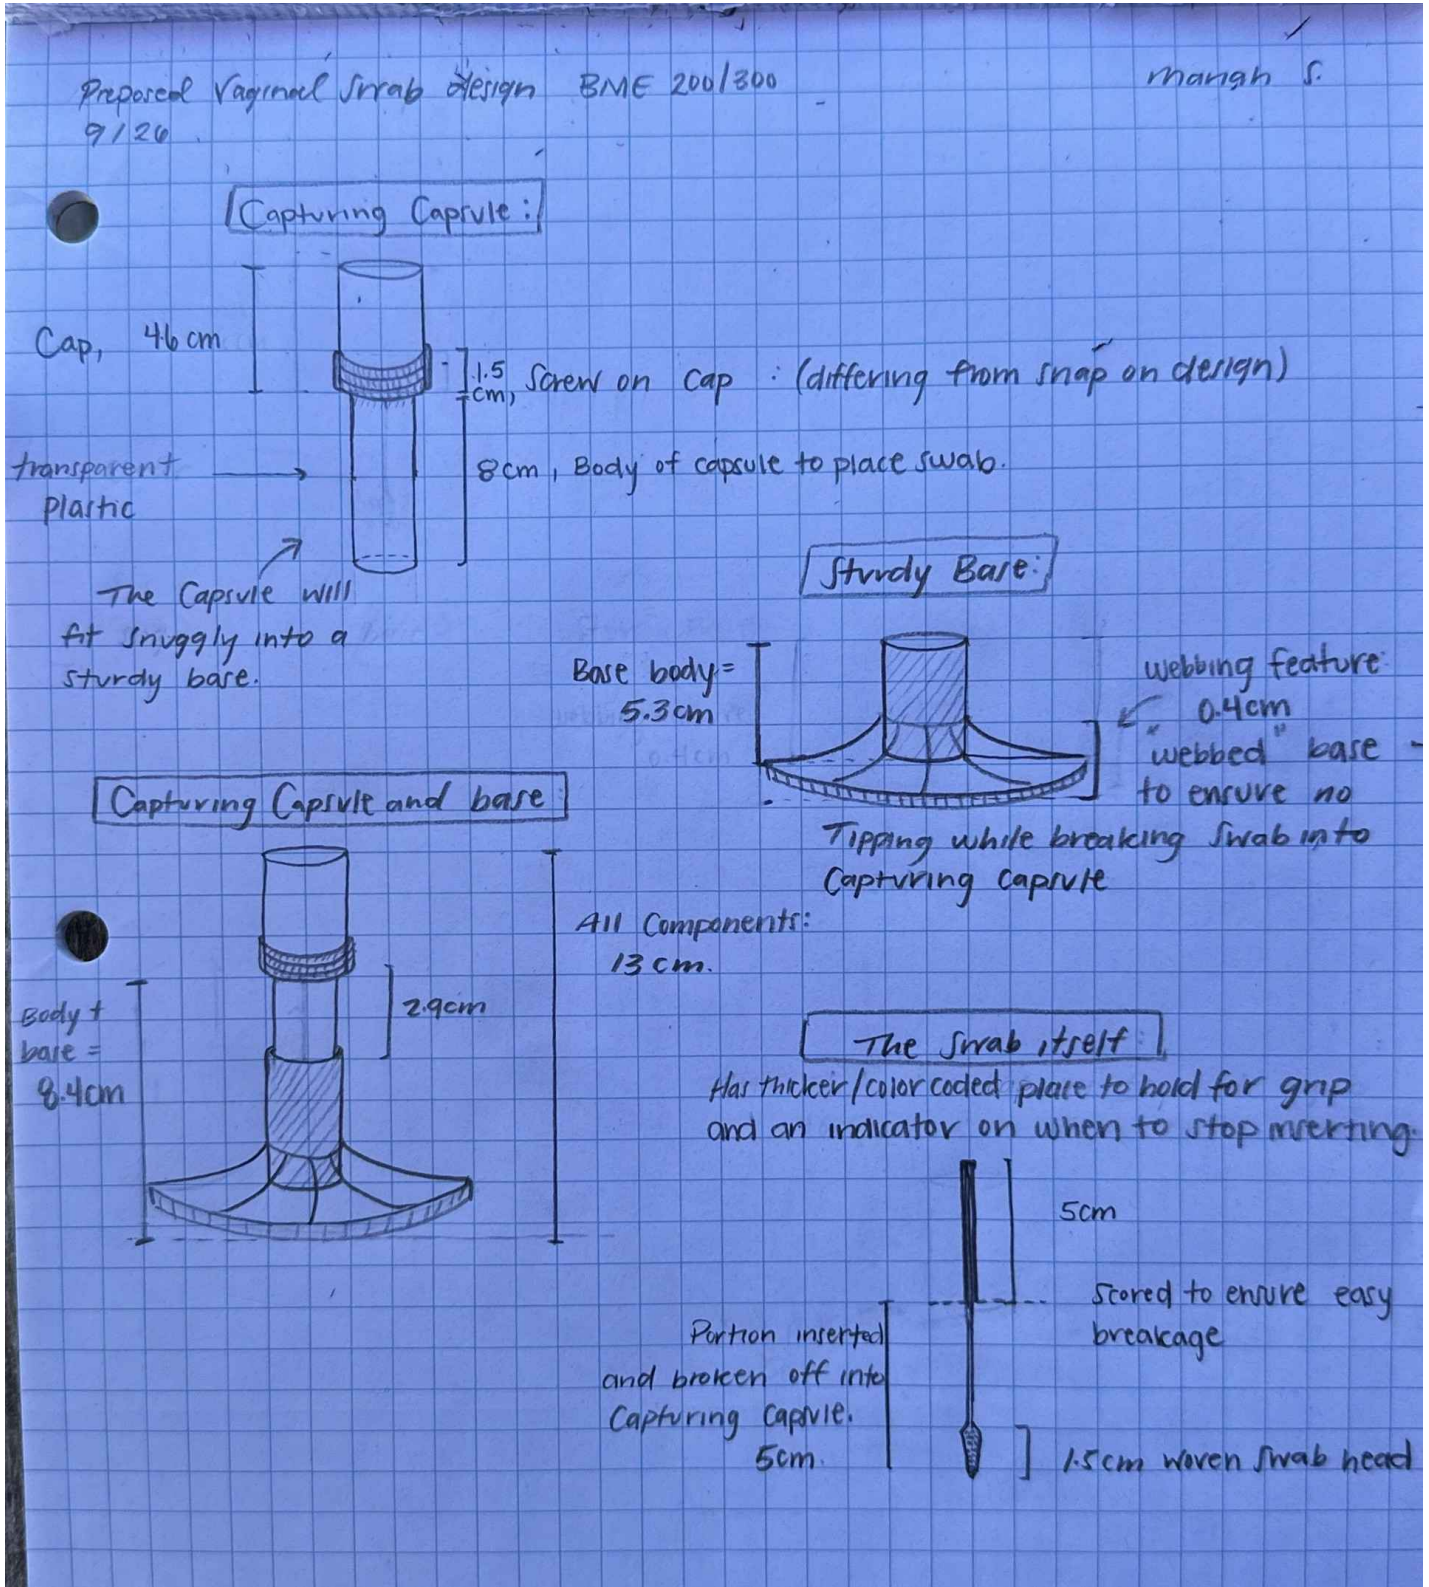 Proposed Vaginal Swab design BME 200/300
Mariah S.
9/26
Capturing Capsule:
Cap, 4.6 cm
1.5
cm, Screw on cap : (differing from snap on design)
transparent
plastic
8cm, Body of capsule to place swab.
The Capsule will
fit snuggly into a
sturdy base.
Sturdy Base:
Base body =
5.3cm
webbing feature:
0.4cm
"webbed" base
to ensure no
Tipping while breaking swab into
Capturing capsule
Capturing Capsule and base
All Components:
13 cm.
2.9cm
Body +
base =
8.4cm
The Swab itself:
Has thicker/color coded place to hold for grip
and an indicator on when to stop inserting.
5cm
Scored to ensure easy
breakage
Portion inserted
and broken off into
Capturing Capsule.
5cm.
1.5cm woven swab head